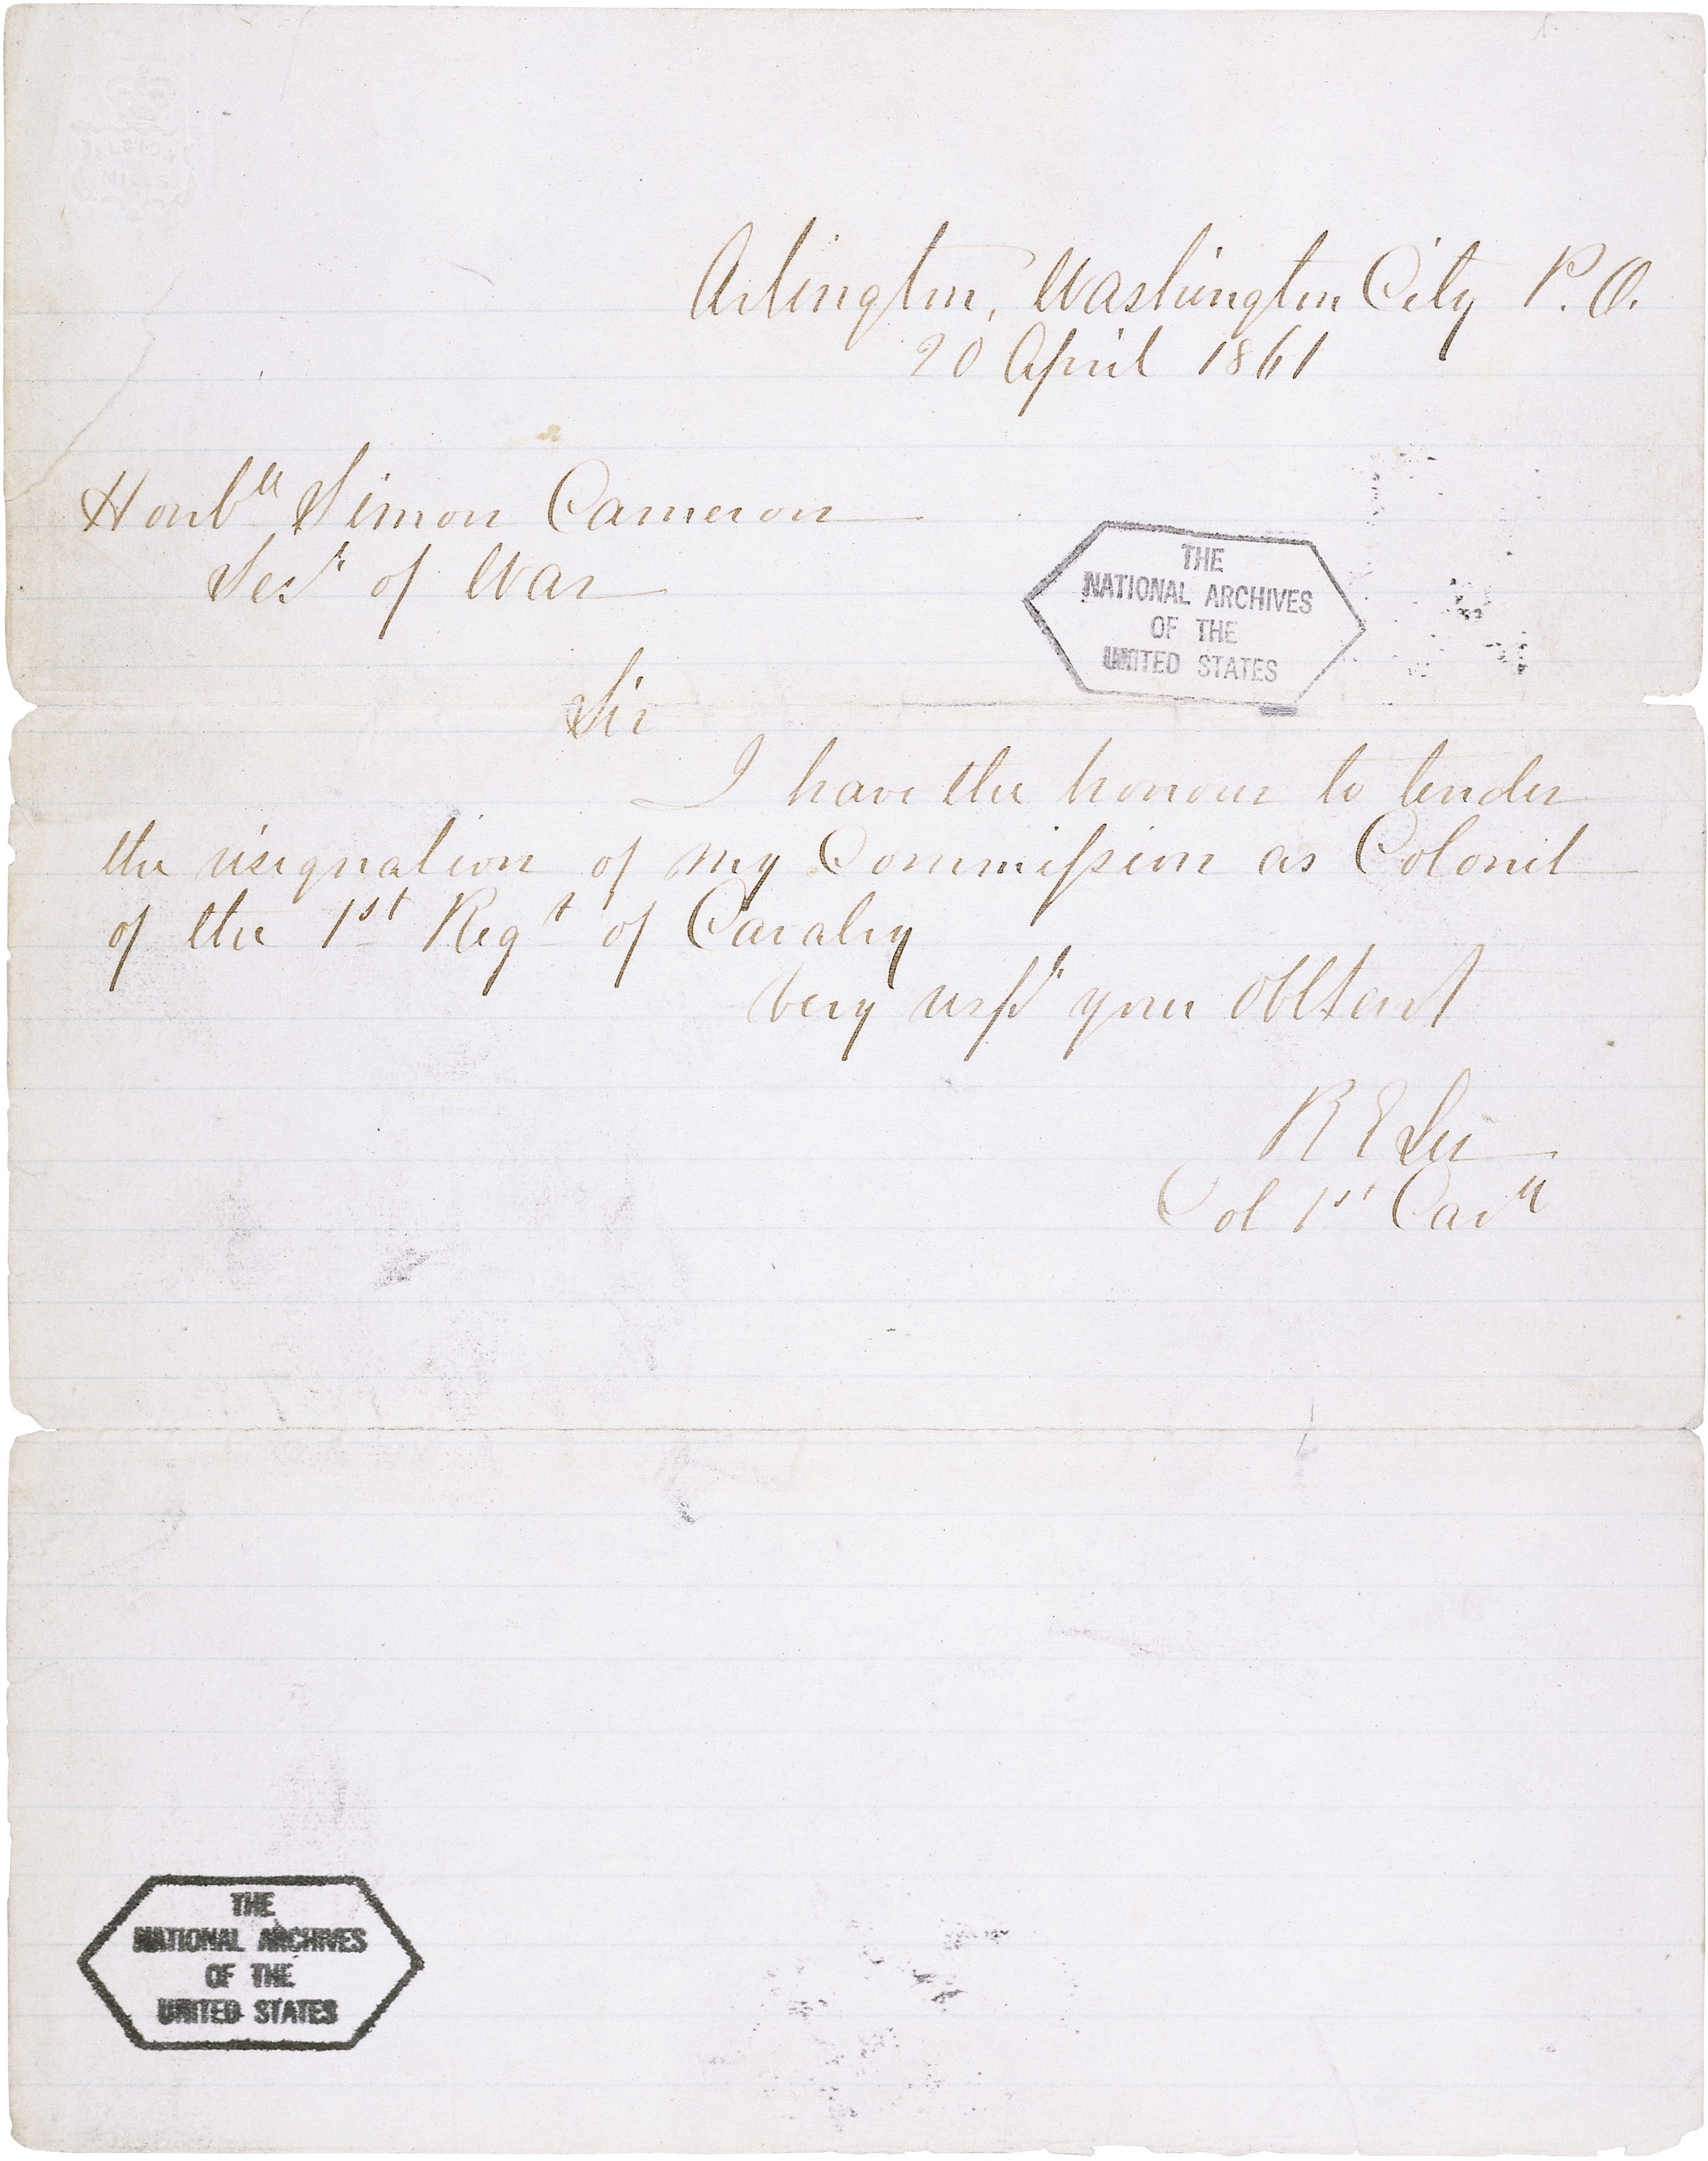 ALBION
MILLS
Arlington, Washington City P.O.
20 April 1861
Honble Simon Cameron
Secy of War
THE
NATIONAL ARCHIVES
OF THE
UNITED STATES
Sir
I have the honour to tender
the resignation of my Commission as Colonel
of the 1st Regt of Cavalry
Very respy your Obt Servt
R E Lee
Col 1st Cavy
THE
NATIONAL ARCHIVES
OF THE
UNITED STATES